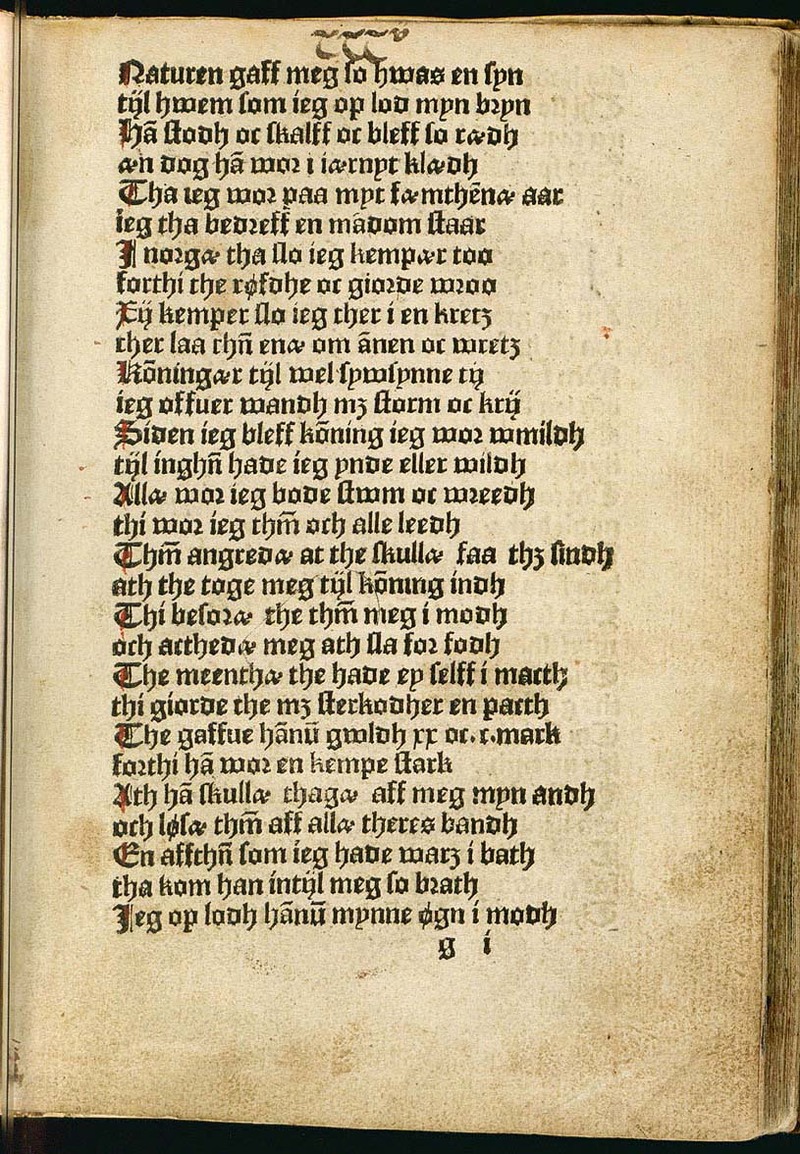 Naturen gaff meg so hwas en syn
tijl hwem som ieg op lod myn bryn
Hā stodh oc skalff oc bleff so rædh
æn dog hā wor i iærnyt klædh
Tha ieg wor paa myt fæmthēnæ aar
ieg tha bedreff en mādom staar
I norgæ tha slo ieg kempær too
forthi the røfdhe oc giorde wroo
Xij kemper slo ieg ther i en kretz
ther laa thn̄ enæ om ānen oc wretz
Kōningær tijl wel sywsynne tij
ieg offuer wandh mz storm oc krij
Siden ieg bleff kōning ieg wor wmildh
tijl inghn̄ hade ieg ynde eller wildh
Allæ wor ieg bode stwm oc wreedh
thi wor ieg thm̄ och alle leedh
Thm̄ angredæ at the skullæ faa thz sindh
ath the toge meg tijl kōning indh
Thi besoræ the thm̄ meg i modh
och acthedæ meg ath sla for fodh
The meenthæ the hade ey selff i macth
thi giorde the mz sterkodher en pacth
The gaffue hānū gwldh xx oc.c.mark
forthi hā wor en kempe stark
Ath hā skullæ thagæ aff meg myn andh
och løsæ thm̄ aff allæ theres bandh
En affthn̄ som ieg hade warz i bath
tha kom han intijl meg so brath
Jeg op lodh hānū mynne øgn i modh
g i